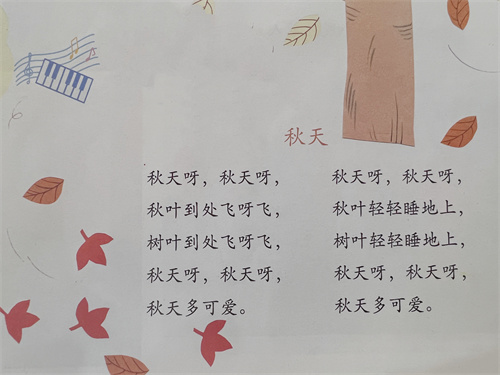 秋天
秋天呀，秋天呀，
秋叶到处飞呀飞，
树叶到处飞呀飞，
秋天呀，秋天呀，
秋天多可爱。
秋天呀，秋天呀，
秋叶轻轻睡地上，
树叶轻轻睡地上，
秋天呀，秋天呀，
秋天多可爱。